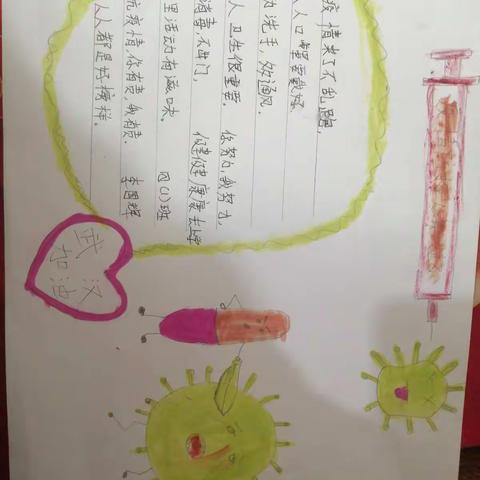 疫情来了不乱跑,
人口罩要戴好.
洗手,效通风.
人卫生很重要. 你努力,我努力,
消毒,不出门, 健健康康去上学
里活动有滋味. 四(1)班
抗疫情,你有责,我有责. 李国辉
人人都是好榜样.
武汉
加油